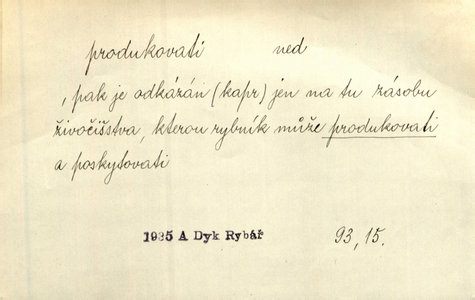 produkovati ned
, pak je odkázán (kapr) jen na tu zásobu
živočišstva, kterou rybník může produkovati
a poskytovati
1935 A Dyk Rybář 93,15.